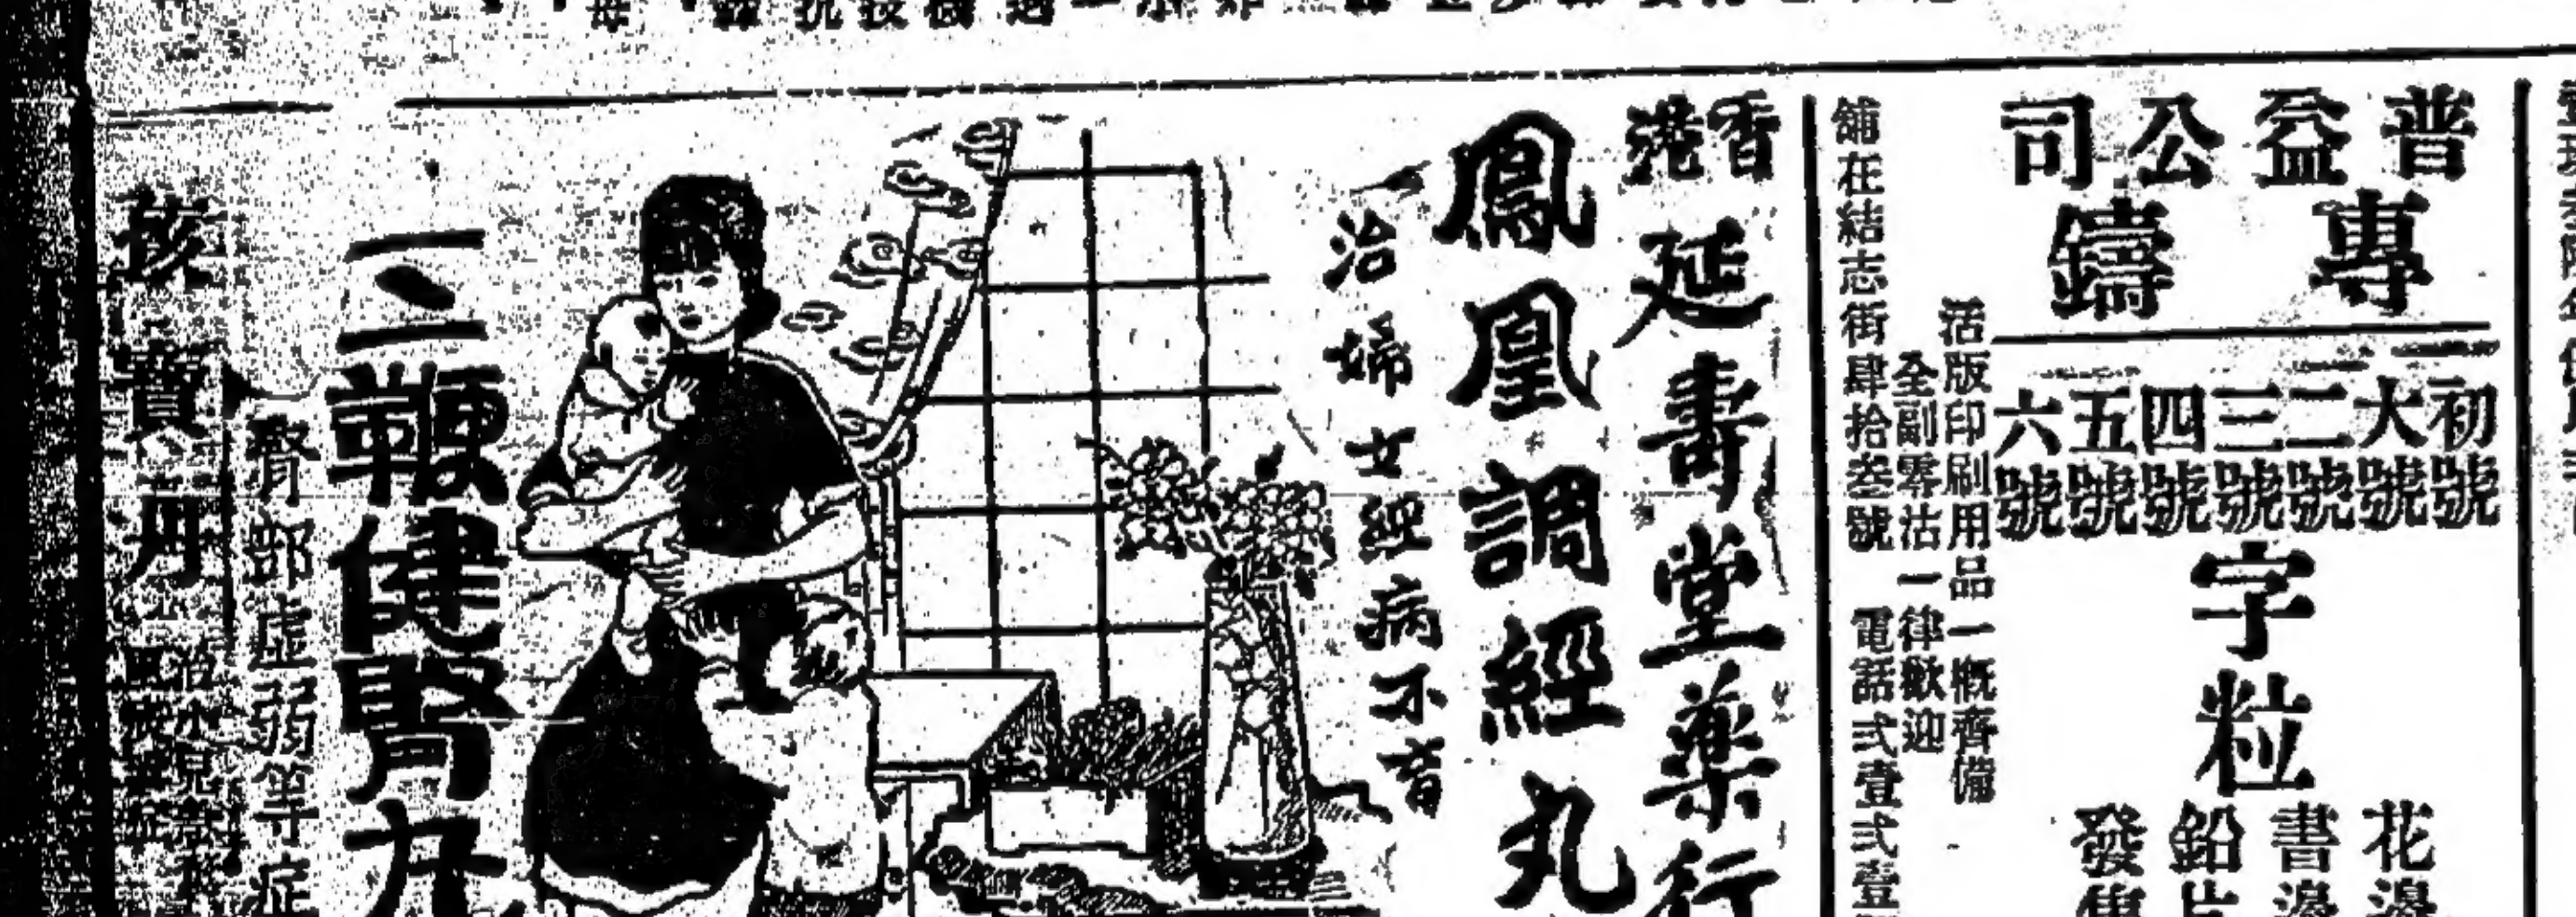 普益公司
專鑄
初號
大號
二號
三號
四號
五號
六號
字粒
花邊
書邊
鉛片
發售
活版印刷用品一概齊備
全副零沽一律歡迎
舖在結志街肆拾叁號 電話弍壹弍壹
香港
延壽堂藥行
鳳凰調經丸
治婦女經病不育
三鞭健腎丸
腎部虛弱等症
孩寶丹